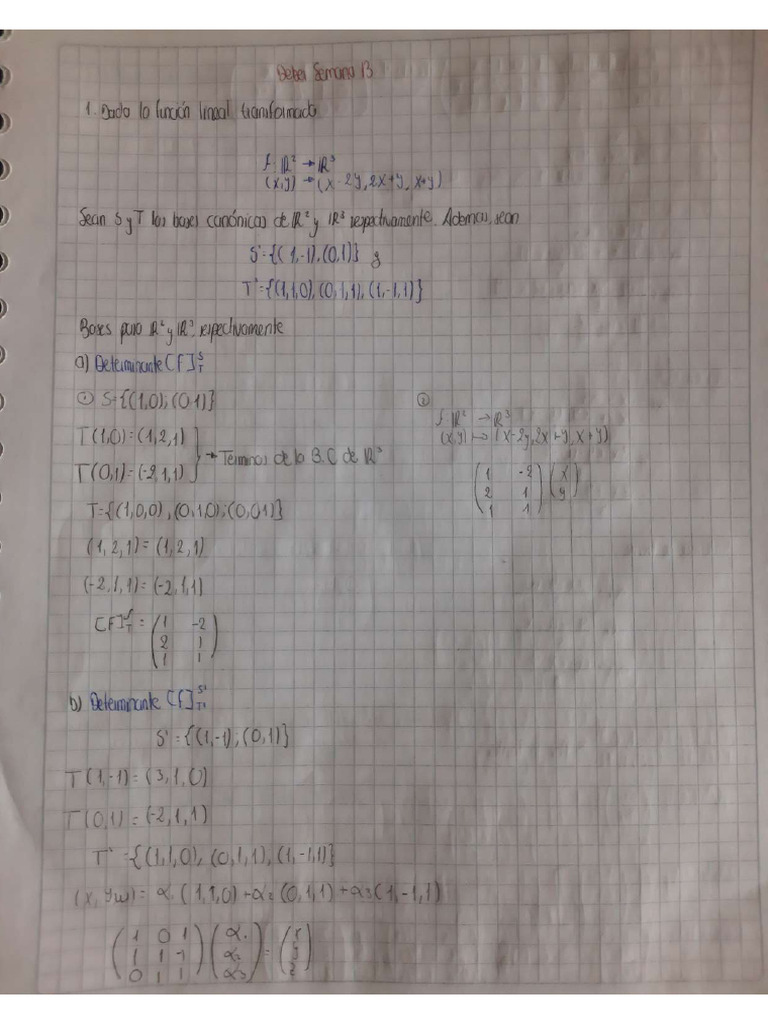 Deber Semana 13
1. Dado la función lineal transformado
f: ℝ² → ℝ³
(x,y) → (x-2y, 2x+y, x+y)
Sean S y T las bases canónicas de ℝ² y ℝ³ respectivamente. Ademas, sean
S' = {(1,-1), (0,1)} y
T' = {(1,1,0), (0,1,1), (1,-1,1)}
Bases para ℝ² y ℝ³ respectivamente
a) Determinante [F]ˢ_T
① S = {(1,0); (0,1)}
T(1,0) = (1,2,1)
T(0,1) = (-2,1,1)
→ Terminos de la B.C de ℝ³
T = {(1,0,0), (0,1,0); (0,0,1)}
(1,2,1) = (1,2,1)
(-2,1,1) = (-2,1,1)
[F]ˢ_T = (1 -2
2 1
1 1)
②
f: ℝ² → ℝ³
(x,y) ↦ (x-2y, 2x+y, x+y)
(1 -2) (x
2 1 y)
1 1
b) Determinante [f]ˢ'_T'
S' = {(1,-1); (0,1)}
T(1,-1) = (3,1,0)
T(0,1) = (-2,1,1)
T' = {(1,1,0), (0,1,1), (1,-1,1)}
(x, y, ω) = α₁ (1,1,0) + α₂ (0,1,1) + α₃ (1,-1,1)
(1 0 1) (α₁) = (x)
(1 1 -1) (α₂) (y)
(0 1 1) (α₃) (z)